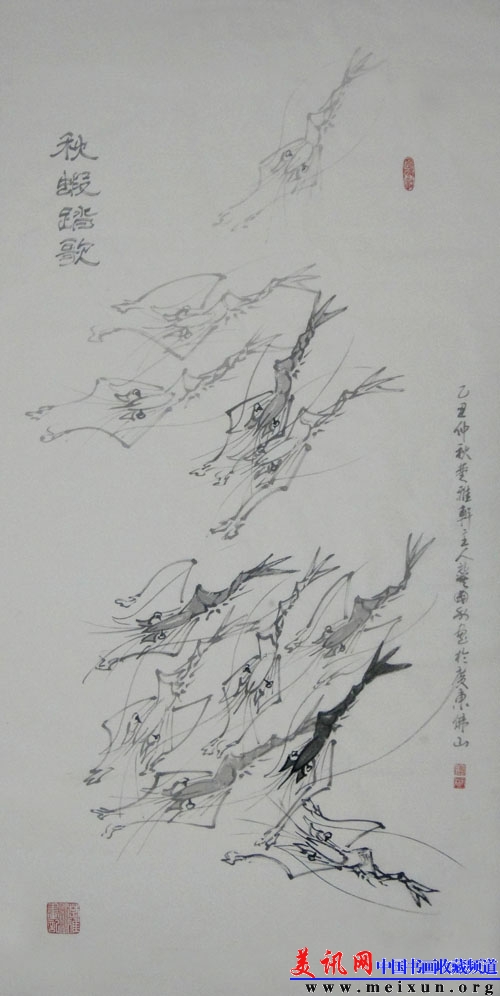 秋蝦踏歌
乙丑仲秋楚雅軒主人龔由於廣東佛山
美讯网中国书画收藏频道
www.meixun.org